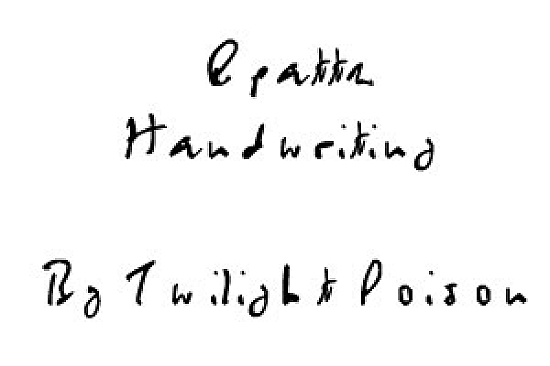 Rpattz
Handwriting
By Twilight Poison